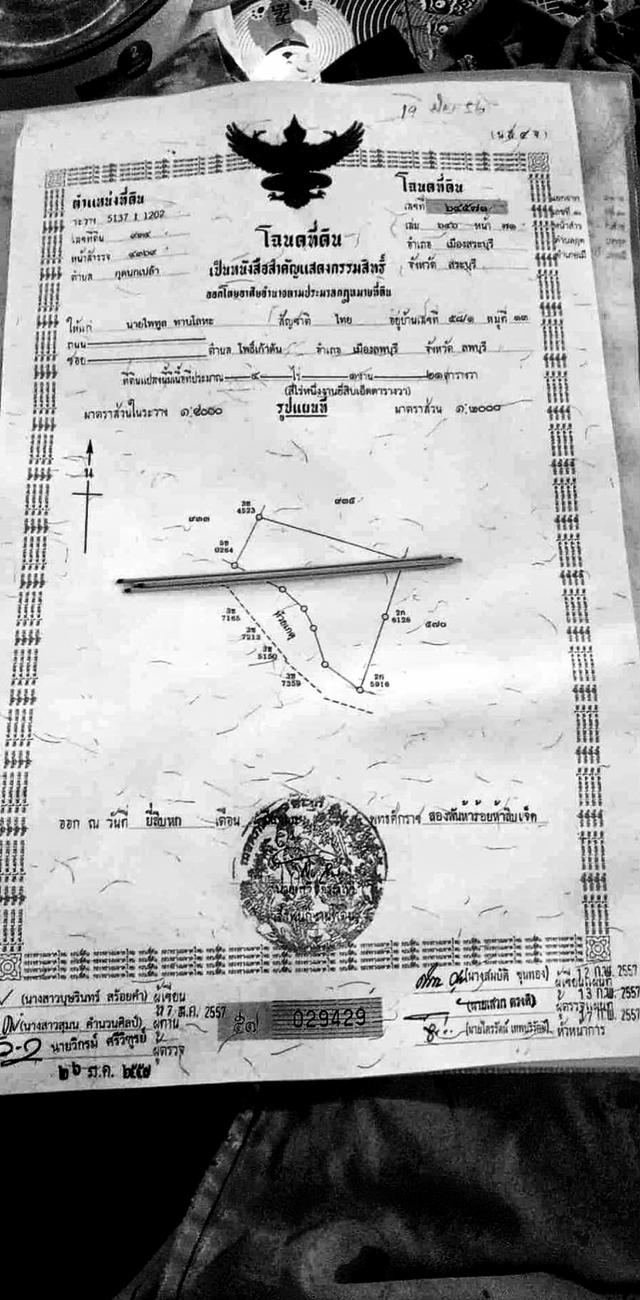 19
(น.ส.๔ จ.)
ตำแหน่งที่ดิน
ระวาง 5137 I 1202
เลขที่ดิน ๙๓๔
หน้าสำรวจ
ตำบล กุดนกเปล้า
โฉนดที่ดิน
เลขที่ ๖๔๕๗๑
เล่ม ๖๔๖ หน้า ๗๑
อำเภอ เมืองสระบุรี
จังหวัด สระบุรี
โฉนดที่ดิน
เป็นหนังสือสำคัญแสดงกรรมสิทธิ์
ออกโดยอาศัยอำนาจตามประมวลกฎหมายที่ดิน
ให้แก่ นายไพฑูล ทานโลหะ สัญชาติ ไทย อยู่บ้านเลขที่ ๕๘/๑ หมู่ที่ ๑๓
ถนน
ซอย ตำบล โพธิ์เก้าต้น อำเภอ เมืองลพบุรี จังหวัด ลพบุรี
ที่ดินแปลงนี้มีเนื้อที่ประมาณ ๔ ไร่ ๑ งาน ๒๑ ตารางวา
(สี่ไร่หนึ่งงานยี่สิบเอ็ดตารางวา)
มาตราส่วนในระวาง ๑:๔๐๐๐ รูปแผนที่ มาตราส่วน ๑:๒๐๐๐
น
๙๓๓
3ช
4523
๙๓๕
3ช
0264
3ช
7165
3ช
7213
3ช
5150
3ช
7359
2ก
6126
๕๗๐
2ก
5916
ออก ณ วันที่ ยี่สิบหก เดือน พุทธศักราช สองพันห้าร้อยห้าสิบเจ็ด
(นางสาวบุษรินทร์ สร้อยคำ) ผู้เขียน
ม.ค. 2557
(นางสาวสุมน คำนวนศิลป์) ผู้ทาน
นายวิกรม์ ศรีวิฑูรย์ ผู้ตรวจ
๒๖ ม.ค. ๒๕๕๗
๕๗ 029429
(นางสมบัติ ขุนทอง) ผู้เขียนแผนที่ 12 ก.พ. 2557
(นายเสวก ตรงดี) ผู้ตรวจ 13 ก.พ. 2557
(นายไตรรัตน์ เทพบริรักษ์) หัวหน้าการ 2557